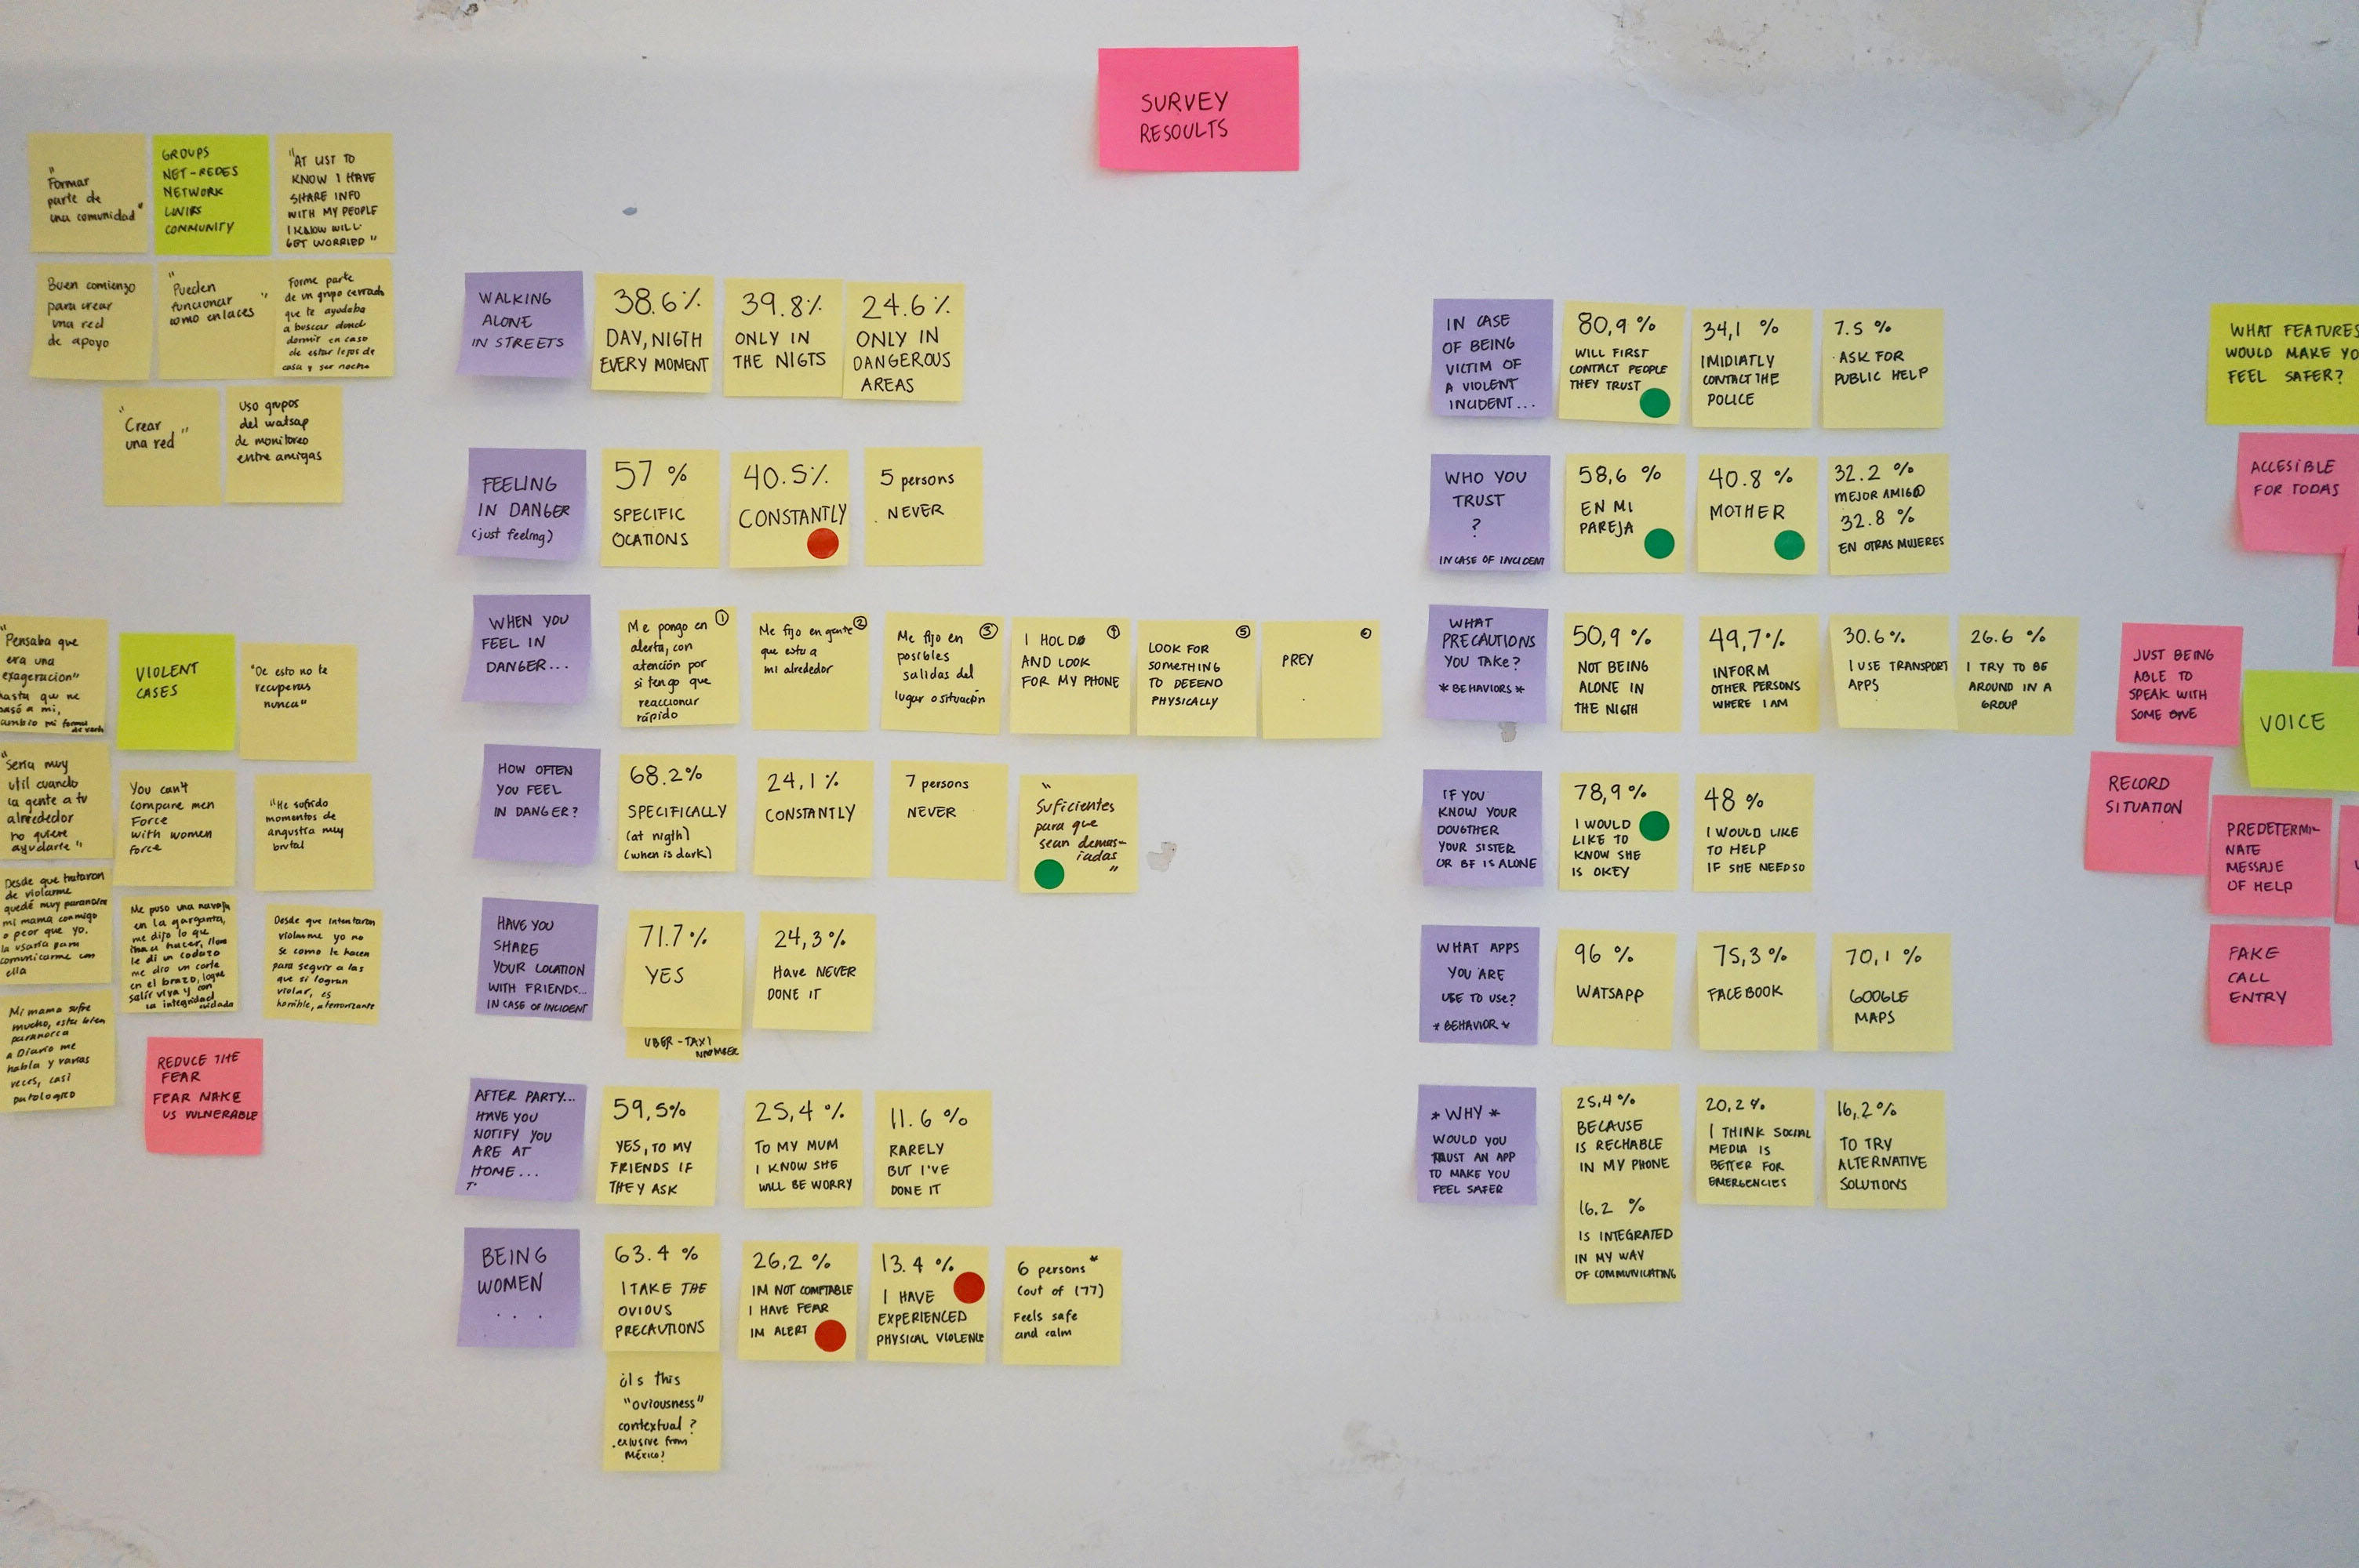 SURVEY
RESOULTS
"
Formar
parte de
una comunidad"
GROUPS
NET-REDES
NETWORK
COMMUNITY
"AT LIST TO
KNOW I HAVE
SHARE INFO
WITH MY PEOPLE
I KNOW WILL
GET WORRIED"
Buen comienzo
para crear
una red
de apoyo
"Pueden
funcionar
como enlaces"
Forme parte
de un grupo cerrado
que te ayudaba
a buscar donde
dormir en caso
de estar lejos de
casa y ser noche
"Crear
una red"
Uso grupos
del watsap
de monitoreo
entre amigas
"Pensaba que
era una
exageracion"
hasta que me
pasó a mi,
cambio mi forma
de verlo
VIOLENT
CASES
"De esto no te
recuperas
nunca"
"Sería muy
util cuando
la gente a tu
alrededor
no quiere
ayudarte"
You can't
compare men
Force
with women
force
"He sufrido
momentos de
angustia muy
brutal
Desde que trataron
de violarme
quedé muy paranoica
mi mama conmigo
o peor que yo.
la usaría para
comunicarme con
ella
Me puso una navaja
en la garganta,
me dijo lo que
iba a hacer,
le di un codazo
me dio un corte
en el brazo, logre
salir viva y con
la integridad
cuidada
Desde que intentaron
violarme yo no
se como le hacen
para seguir a las
que si logran
violar, es
horrible, aterrorizante
Mi mama sufre
mucho, esta bien
paranoica
a Diario me
habla y varias
veces, casi
patologico
REDUCE THE
FEAR
FEAR MAKE
US VULNERABLE
WALKING
ALONE
IN STREETS
38.6%
DAY, NIGTH
EVERY MOMENT
39.8%
ONLY IN
THE NIGTS
24.6%
ONLY IN
DANGEROUS
AREAS
FEELING
IN DANGER
(just feeling)
57 %
SPECIFIC
OCATIONS
40.5%
CONSTANTLY
5 persons
NEVER
WHEN YOU
FEEL IN
DANGER...
Me pongo en ①
alerta, con
atención por
si tengo que
reaccionar
rápido
Me fijo en gente ②
que esta a
mi alrededor
Me fijo en ③
posibles
salidas del
lugar o situación
I HOLD ④
AND LOOK
FOR MY PHONE
⑤
LOOK FOR
SOMETHING
TO DEFEND
PHYSICALLY
PREY
HOW OFTEN
YOU FEEL
IN DANGER?
68.2%
SPECIFICALLY
(at nigth)
(when is dark)
24,1%
CONSTANTLY
7 persons
NEVER
"
Suficientes
para que
sean demas-
iadas
"
HAVE YOU
SHARE
YOUR LOCATION
WITH FRIENDS...
IN CASE OF INCIDENT
71.7%
YES
UBER-TAXI
NNOMBER
24,3%
Have NEVER
DONE IT
AFTER PARTY...
HAVE YOU
NOTIFY YOU
ARE AT
HOME...
59,5%
YES, TO MY
FRIENDS IF
THEY ASK
25,4 %
TO MY MUM
I KNOW SHE
WILL BE WORRY
11.6 %
RARELY
BUT I'VE
DONE IT
BEING
WOMEN
. . .
63.4 %
I TAKE THE
OVIOUS
PRECAUTIONS
26,2 %
IM NOT COMFTABLE
I HAVE FEAR
IM ALERT
13.4 %
I HAVE
EXPERIENCED
PHYSICAL VIOLENCE
6 persons*
(out of 177)
Feels safe
and calm
¿Is this
"oviousness"
contextual?
.exlusive from
México?
IN CASE
OF BEING
VICTIM OF
A VIOLENT
INCIDENT...
80,9 %
WILL FIRST
CONTACT PEOPLE
THEY TRUST
34,1 %
IMIDIATLY
CONTACT THE
POLICE
7.5 %
ASK FOR
PUBLIC HELP
WHO YOU
TRUST
?
IN CASE OF INCIDENT
58,6 %
EN MI
PAREJA
40.8 %
MOTHER
32.2 %
MEJOR AMIG@
32.8 %
EN OTRAS MUJERES
WHAT
PRECAUTIONS
YOU TAKE?
*BEHAVIORS*
50,9 %
NOT BEING
ALONE IN
THE NIGTH
49,7%
INFORM
OTHER PERSONS
WHERE I AM
30.6%
I USE TRANSPORT
APPS
26.6 %
I TRY TO BE
AROUND IN A
GROUP
IF YOU
KNOW YOUR
DOUGTHER
YOUR SISTER
OR BF IS ALONE
78,9%
I WOULD
LIKE TO
KNOW SHE
IS OKEY
48 %
I WOULD LIKE
TO HELP
IF SHE NEED SO
WHAT APPS
YOU ARE
USE TO USE?
*BEHAVIOR*
96 %
WATSAPP
75,3%
FACEBOOK
70,1 %
GOOGLE
MAPS
*WHY*
WOULD YOU
TRUST AN APP
TO MAKE YOU
FEEL SAFER
25,4%
BECAUSE
IS RECHABLE
IN MY PHONE
16.2 %
IS INTEGRATED
IN MY WAY
OF COMMUNICATING
20,2%
I THINK SOCIAL
MEDIA IS
BETTER FOR
EMERGENCIES
16,2%
TO TRY
ALTERNATIVE
SOLUTIONS
WHAT FEATURES
WOULD MAKE YO
FEEL SAFER?
ACCESIBLE
FOR TODAS
JUST BEING
ABLE TO
SPEAK WITH
SOME ONE
VOICE
RECORD
SITUATION
PREDETERMI-
NATE
MESSAJE
OF HELP
FAKE
CALL
ENTRY